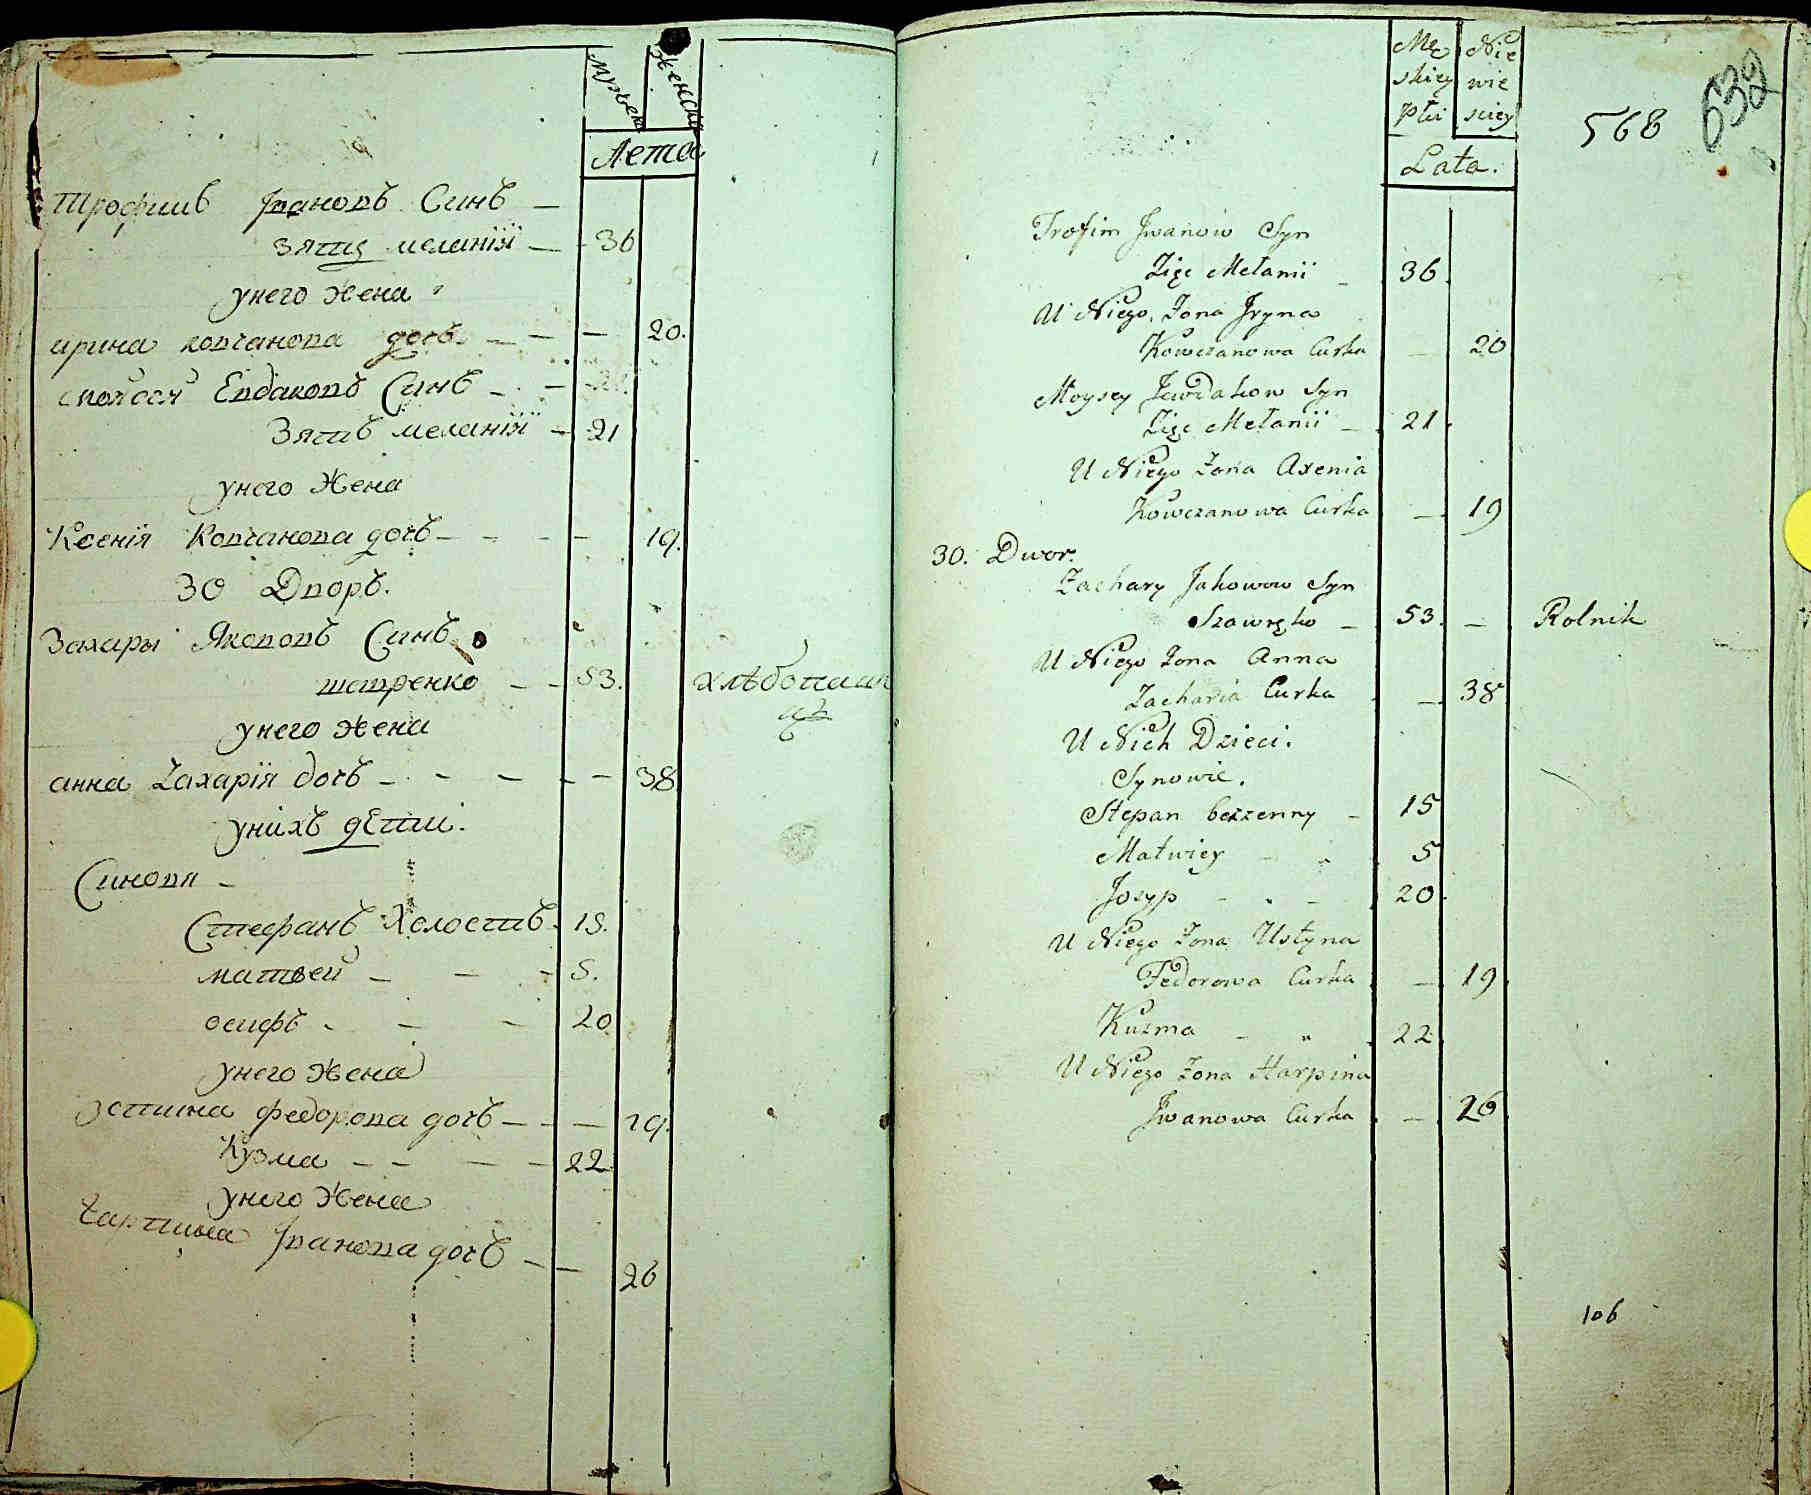 мужеска
женска
Лета
Трофимъ Івановъ Синъ —
зять меланїи — 36
унего жена
ирина ковчанова дочь — — — 20.
Евдаковъ Синъ — —
Зять меланїи — 21
унего жена
Ксенія Ковчанова дочь — — — — 19.
30 Дворъ.
Захарый Якововъ Синъ
— — 53. хлѣбопашецъ
унего жена
анна Zахарія дочь — — — — — 38
унихъ дети.
Синовя —
Стефанъ Холостъ. 15.
матвей — — — 5.
осифъ — — — 20.
унего жена
устина федорова дочь — — — 19.
Кузма — — — — 22
унего жена
Іванова дочь — — 26
Męskiey Płci
Niewieściey
Lata.
568
632
Trofim Jwanow Syn
Zięc Mełanii — 36.
U Niego Zona Jryna
Kowczanowa Curka — 20
Moysey Jewdakow Syn
Zięc Mełanii — 21.
U Niego Zona Axenia
Kowczanowa Curka — 19
30. Dwor.
Zachary Jakowow Syn
— 53. — Rolnik
U Niego Zona Anna
Zacharia Curka — 38
U Nich Dzieci.
Synowie.
Stepan bezzenny — 15
Matwiey — „ 5
Josyp — „ — 20.
U Niego Zona Ustyna
Fedorowa Curka — 19.
Kuzma — „ 22.
U Niego Zona Harpina
Jwanowa Curka — 26.
106